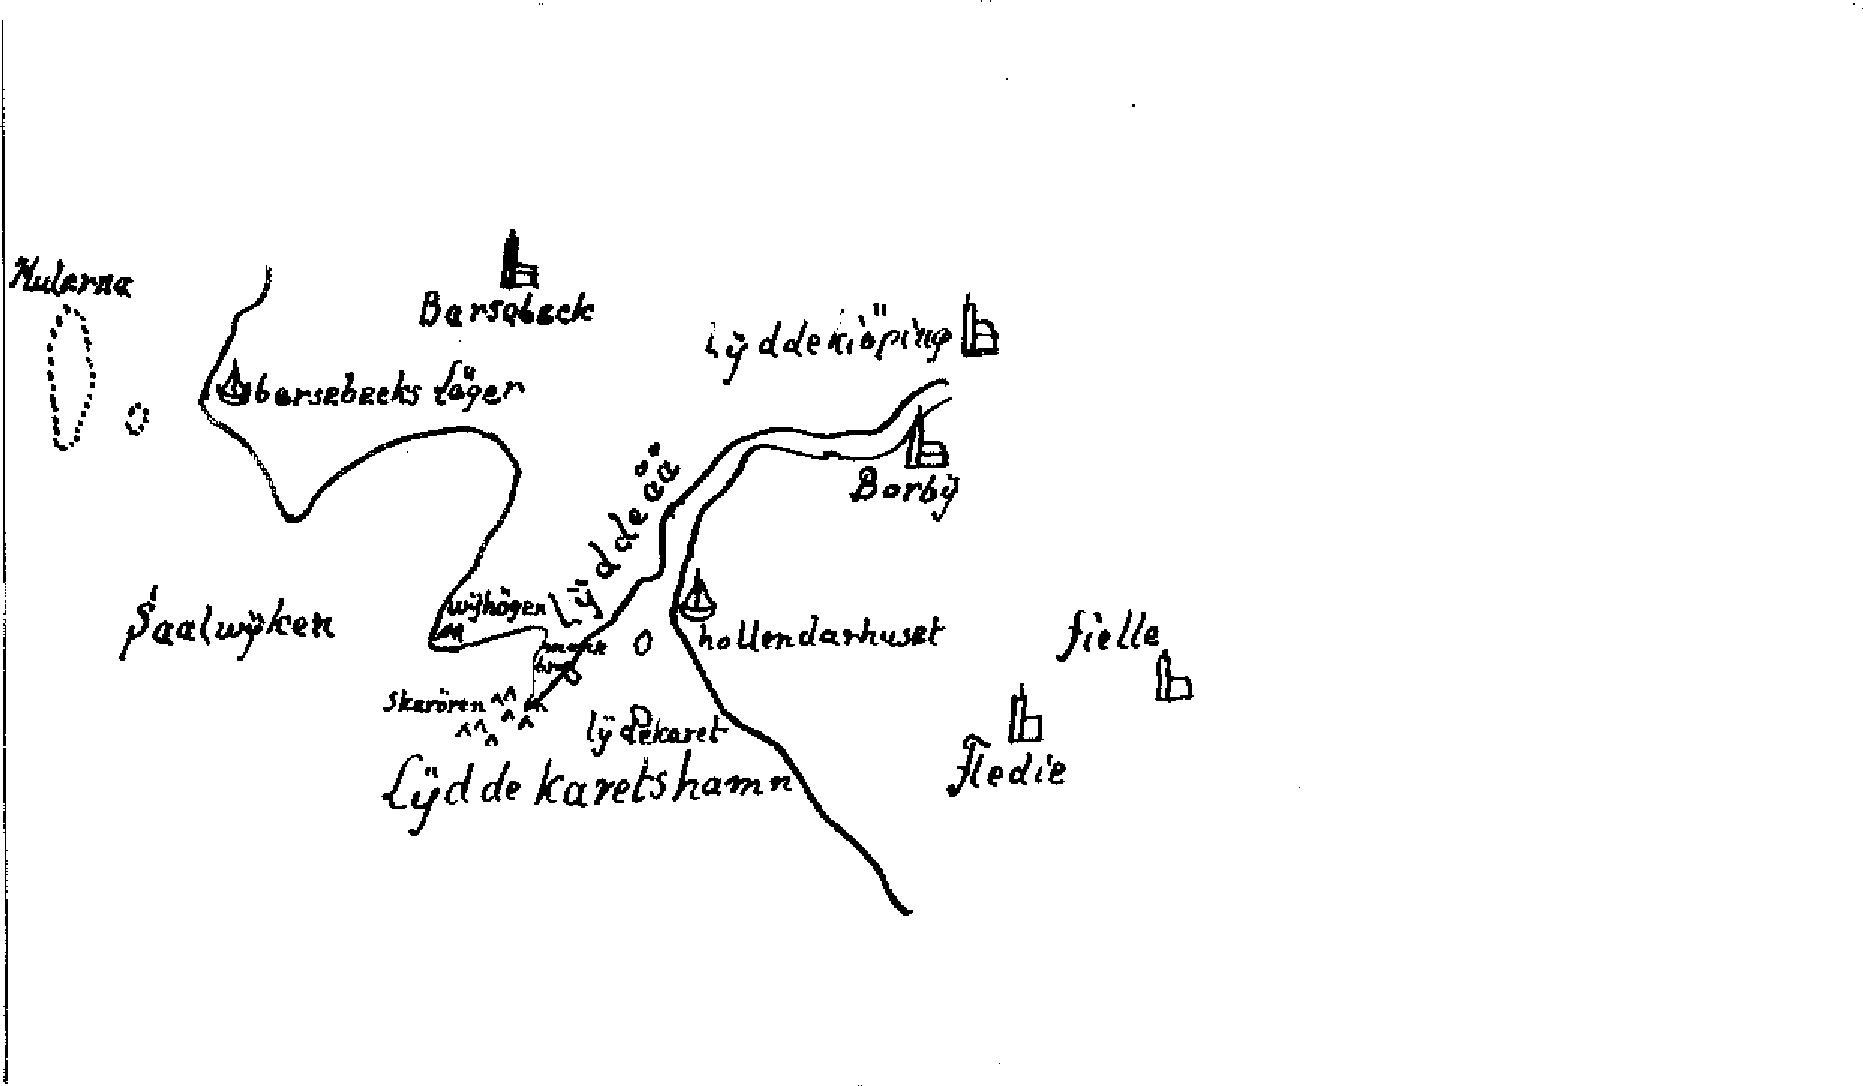 Hularna
Barsabeck
Lÿddekiöping
barsebecks läger
Borbÿ
Lÿddeåå
Saalwijken
wijhögen
hollendarhuset
fielle
munk
Skarören
lÿdekaret
Fledie
Lÿddekaretshamn